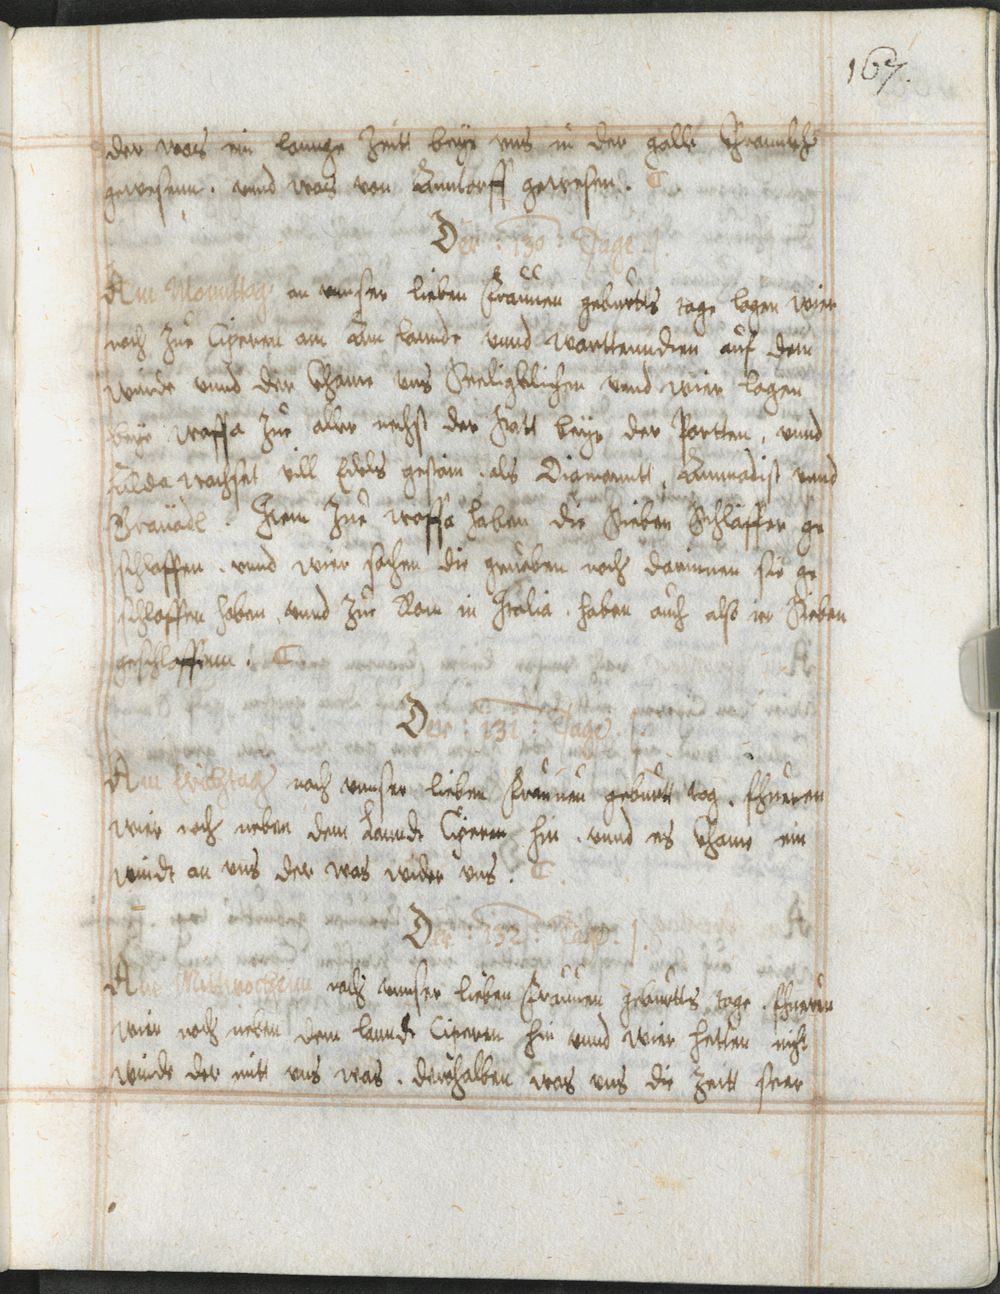 167.
der was ein lannge Zeitt beÿe vns in der galle Kranckh
gewesenn. vnnd was von Anntorff gewesen.
Der : 130 : Tage.
Am Monnttag an vnnser lieben Frauuen geburtts tage lagen wier
noch Zue Ciperen am Am lannde vnnd warttenndten auf dem
winde vnnd der Khame vns Seeligklichen vnnd wier lagen
beÿe Waffa Zue aller nechst der Statt beÿe der Portten, vnnd
Allda wachset vill Edels gestain. als Diamanntt, Ammadist vnnd
Hiem Zue Waffa haben die Sieben Schläffer ge
schlaffen. vnnd wier sahen die grueben noch darinnen sie ge
schlaffen haben, vnnd Zue Rom in Italia. haben auch also ir Sieben
geschlaffenn.
Der : 131 : Tage.
Am Erichtag nach vnnser lieben Frauuen geburtt tag. fhueren
wier noch neben dem Lanndt Ciperen hin. vnnd es Khame ein
windt an vns der was wider vns.
Der : 132 : Tage.
Am Mittwochenn nach vnnser lieben Frauuen geburtts tage. fhueren
wier noch neben dem lannde Ciperen hin vnnd wier hetten nicht
winde der mitt vns was. derohalben was vns die Zeitt seer